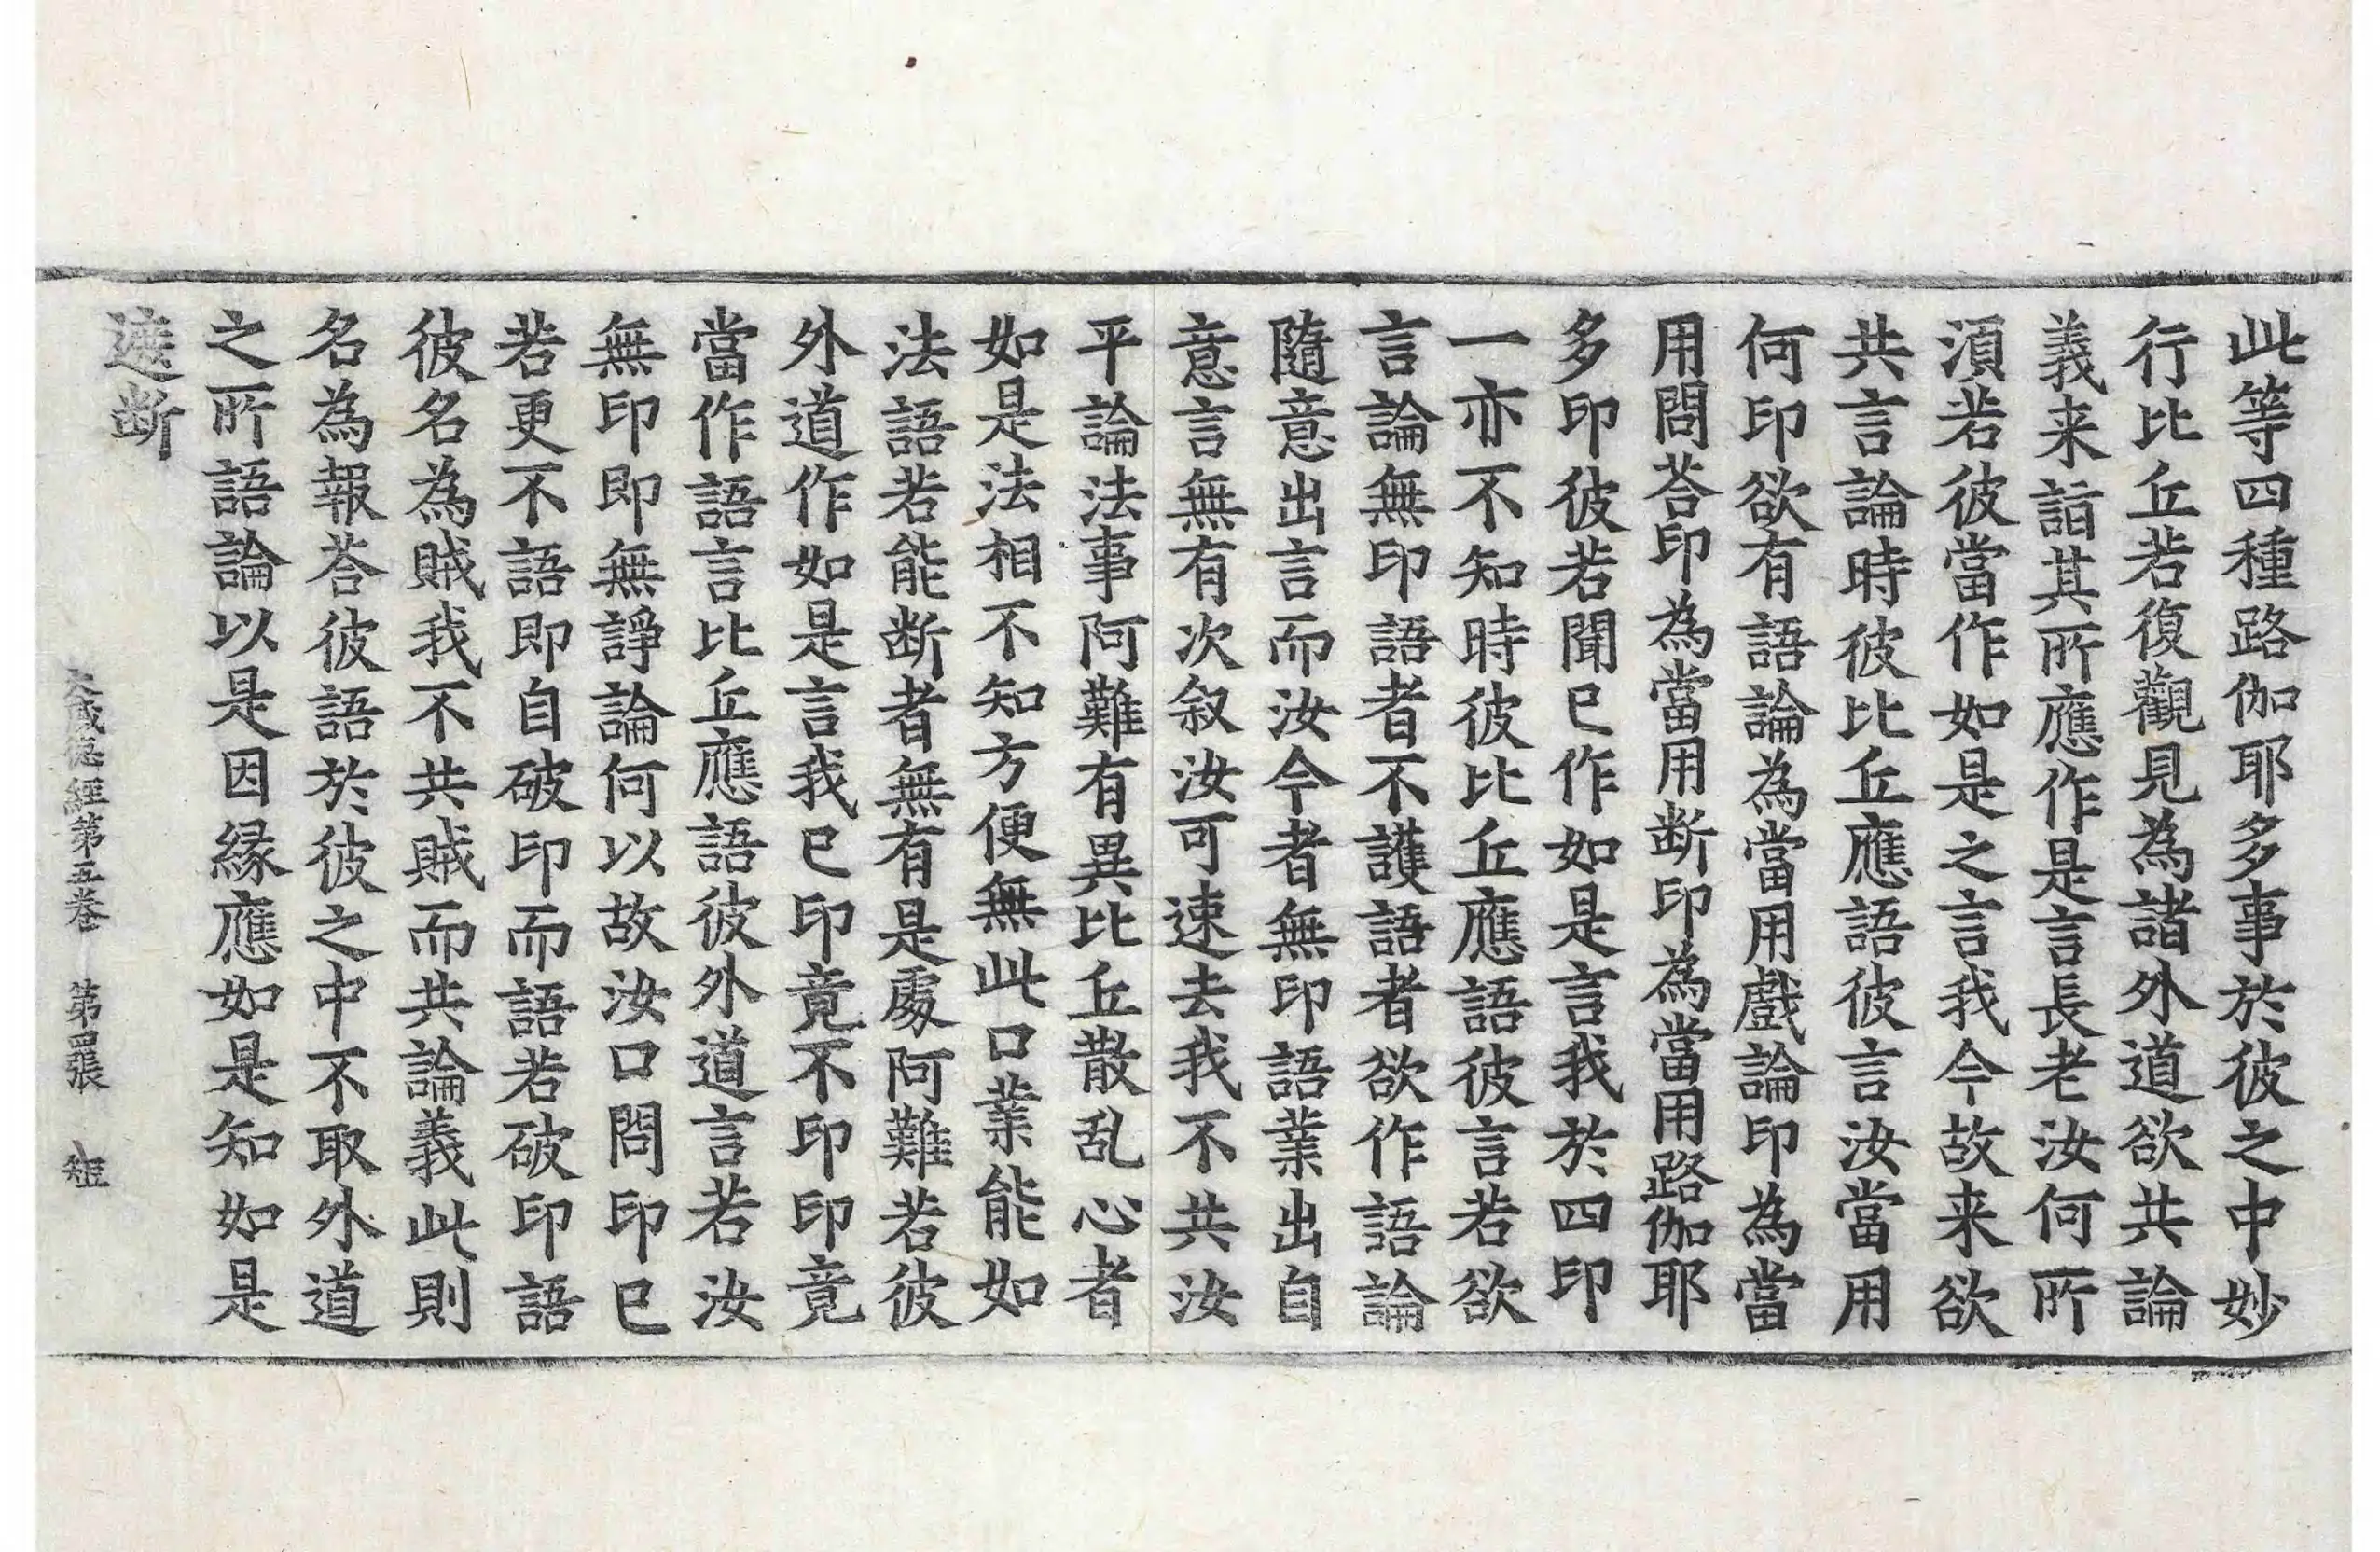 此等四種路伽耶多事於彼之中妙
行比丘若復觀見為諸外道欲共論
義来詣其所應作是言長老汝何所
湏若彼當作如是之言我今故来欲
共言論時彼比丘應語彼言汝當用
何印欲有語論為當用戲論印為當
用問荅印為當用断印為當用路伽耶
多印彼若聞已作如是言我於四印
一亦不知時彼比丘應語彼言若欲
言論無印語者不護語者欲作語論
隨意出言而汝今者無印語業出自
意言無有次叙汝可速去我不共汝
平論法事阿難有異比丘散乱心者
如是法相不知方便無此口業能如
法語若能断者無有是處阿難若彼
外道作如是言我已印竟不印印竟
當作語言比丘應語彼外道言若汝
無印即無諍論何以故汝口問印已
若更不語即自破印而語若破印語
彼名為賊我不共賊而共論義此則
名為報荅彼語於彼之中不取外道
之所語論以是因緣應如是知如是
遮断
大威德經第五卷 第四張 短